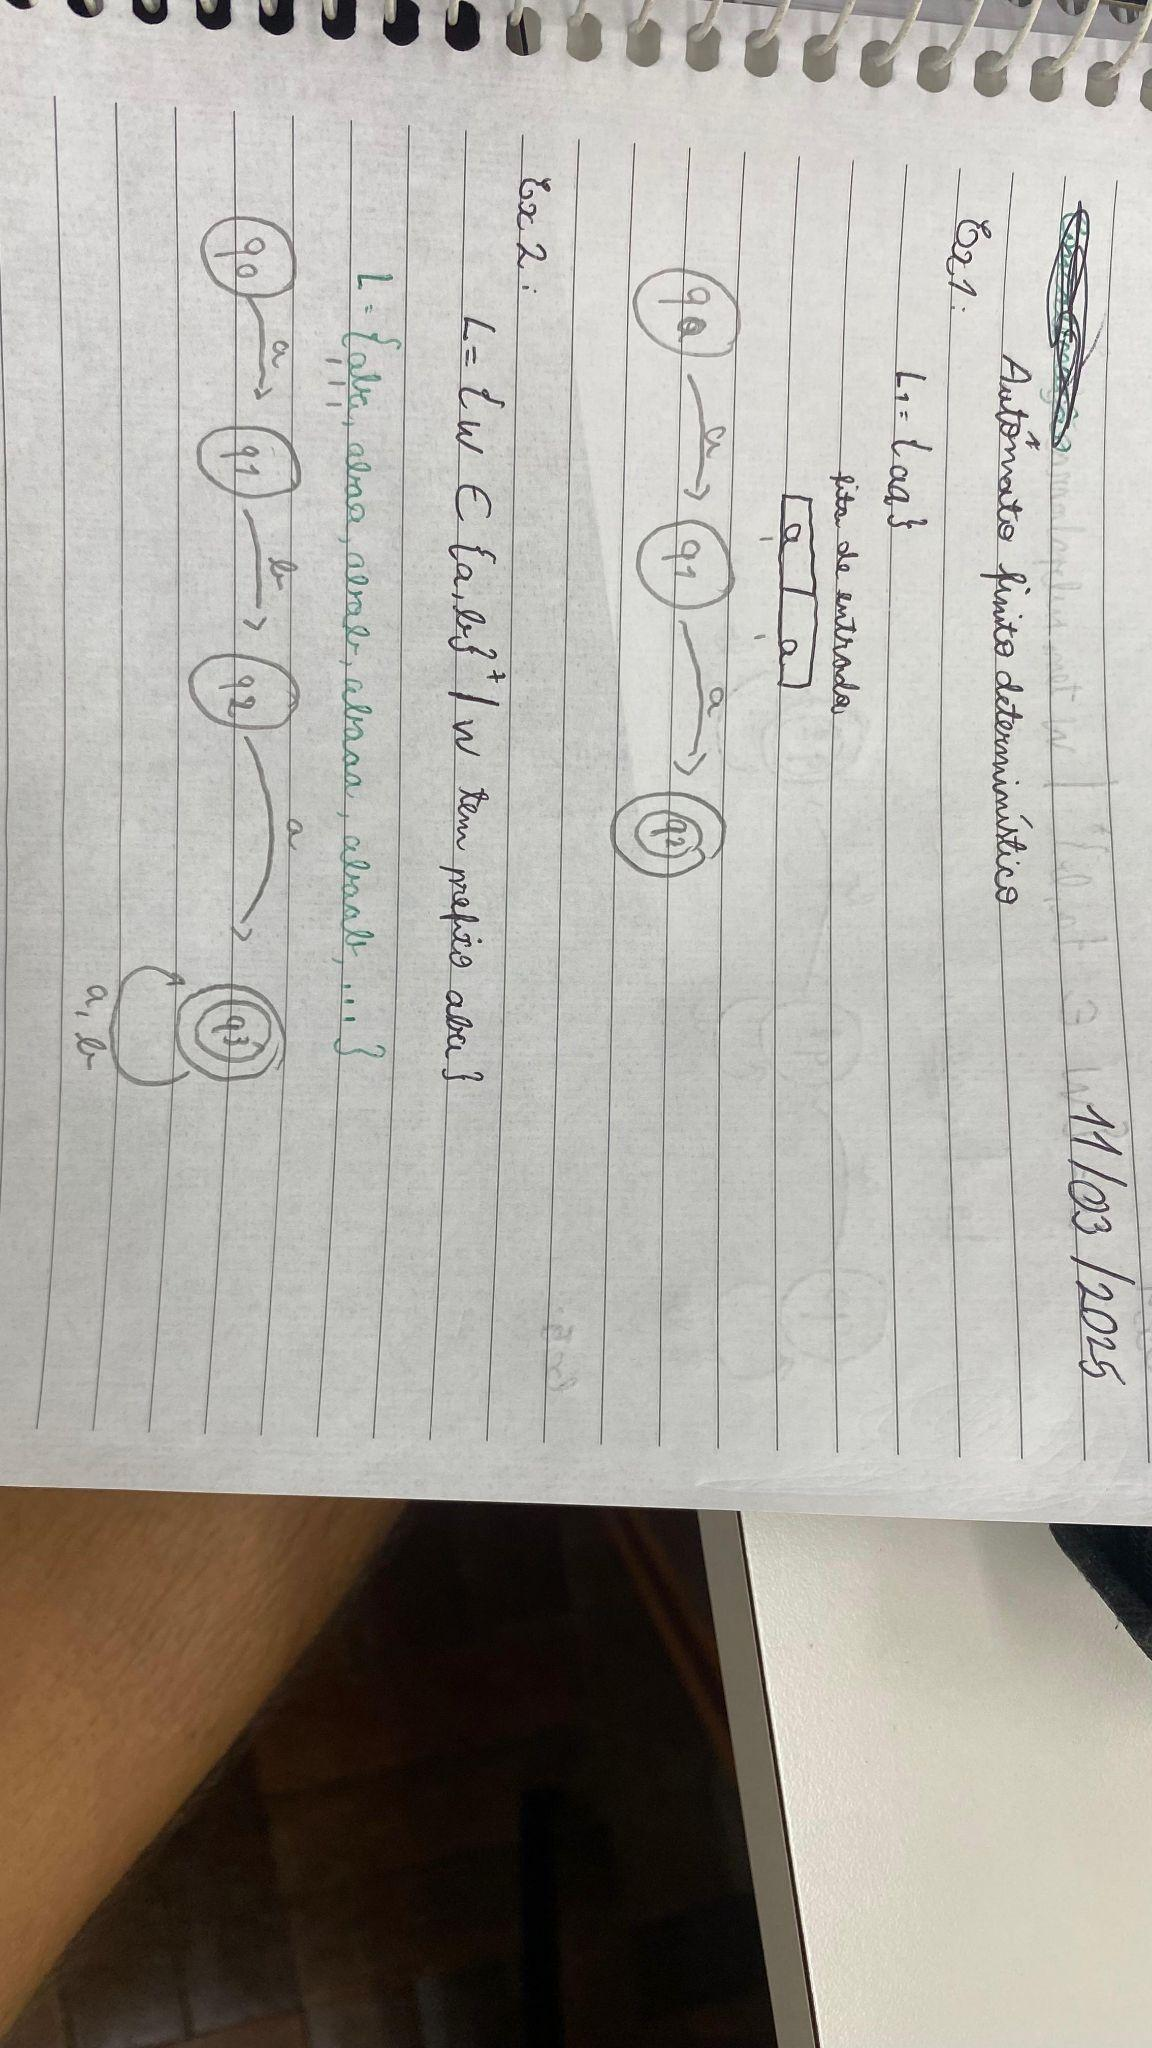 11/03/2025
Autômato finito determinístico
Ex1:
L1 = {aa}
fita de entrada
a a
q0 a q1 a q2
Ex2:
L = { w ∈ {a, b}+ / w tem prefixo aba}
L = {aba, abaa, abab, abaaa, abaab, ...}
q0 a q1 b q2 a q3
a, b